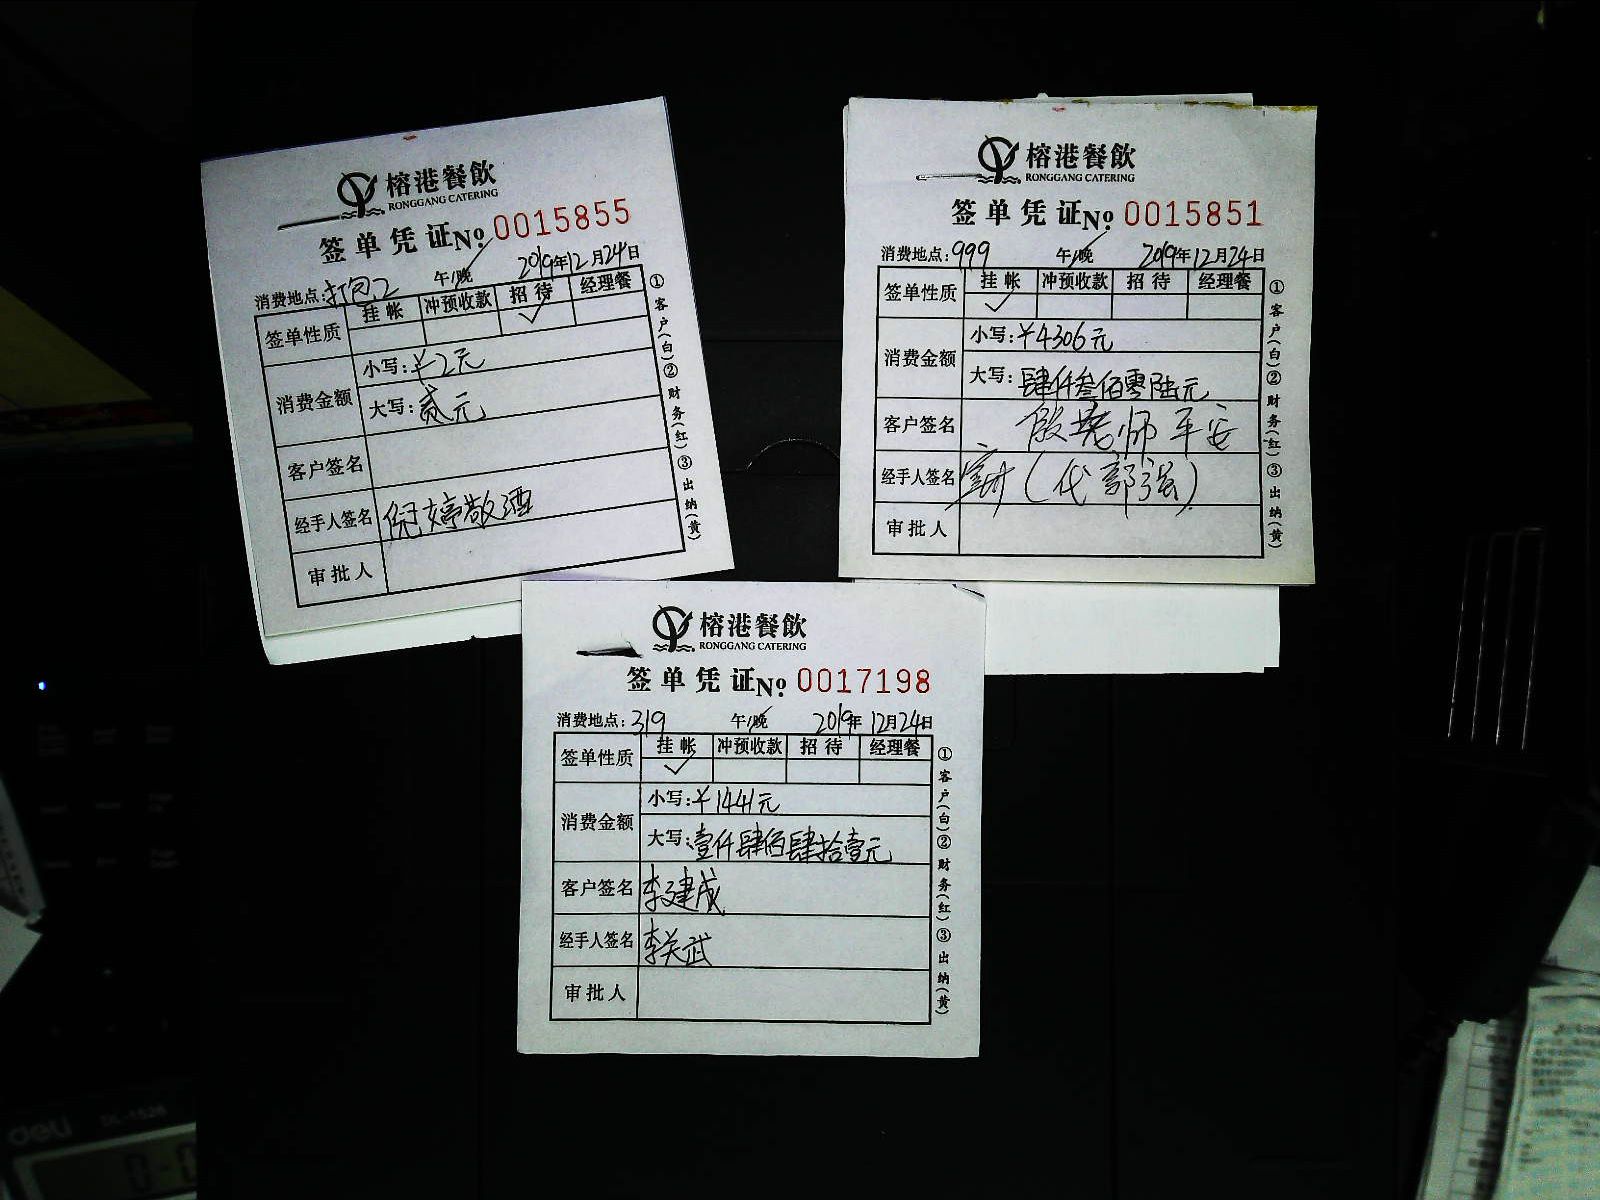 榕港餐飲
RONGGANG CATERING
签单凭证 No 0015855
消费地点:打包2 午/晚 2019年12月24日
签单性质 挂帐 冲预收款 招待 经理餐
✓
消费金额 小写:¥2元
大写:贰元
客户签名
经手人签名 倪婷敬酒
审批人
①客户(白)②财务(红)③出纳(黄)
榕港餐飲
RONGGANG CATERING
签单凭证 No 0015851
消费地点:999 午/晚 2019年12月24日
签单性质 挂帐 冲预收款 招待 经理餐
✓
消费金额 小写:¥4306元
大写:肆仟叁佰零陆元
客户签名 殷老师平安
经手人签名 (代郭强)
审批人
①客户(白)②财务(红)③出纳(黄)
榕港餐飲
RONGGANG CATERING
签单凭证 No 0017198
消费地点:319 午/晚 2019年12月24日
签单性质 挂帐 冲预收款 招待 经理餐
✓
消费金额 小写:¥1441元
大写:壹仟肆佰肆拾壹元
客户签名 李建成
经手人签名 李关武
审批人
①客户(白)②财务(红)③出纳(黄)
deli DL-1526